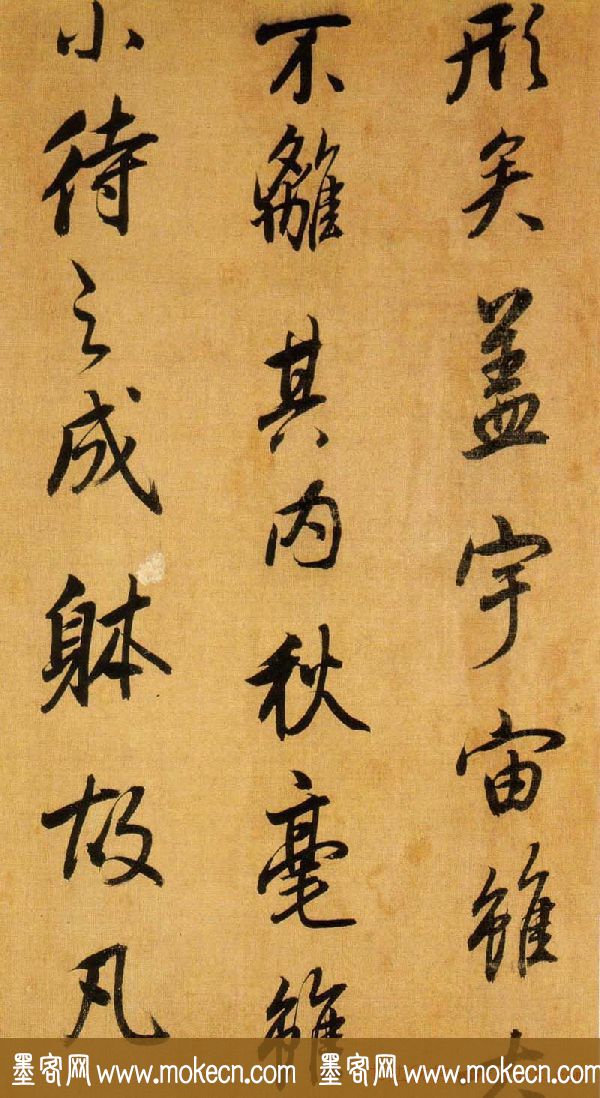 形矣盖宇宙雖大
不離其内秋毫雖
小待之成躰故凡
墨客网 www.mokecn.com 墨客网 www.mokecn.com